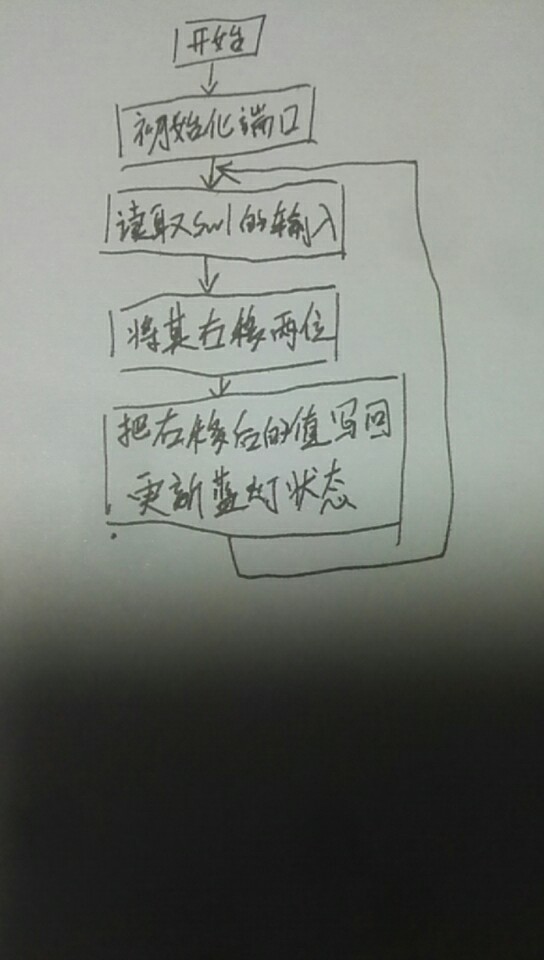 开始
初始化端口
读取sw1的输入
将其右移两位
把右移后的值写回
更新蓝灯状态